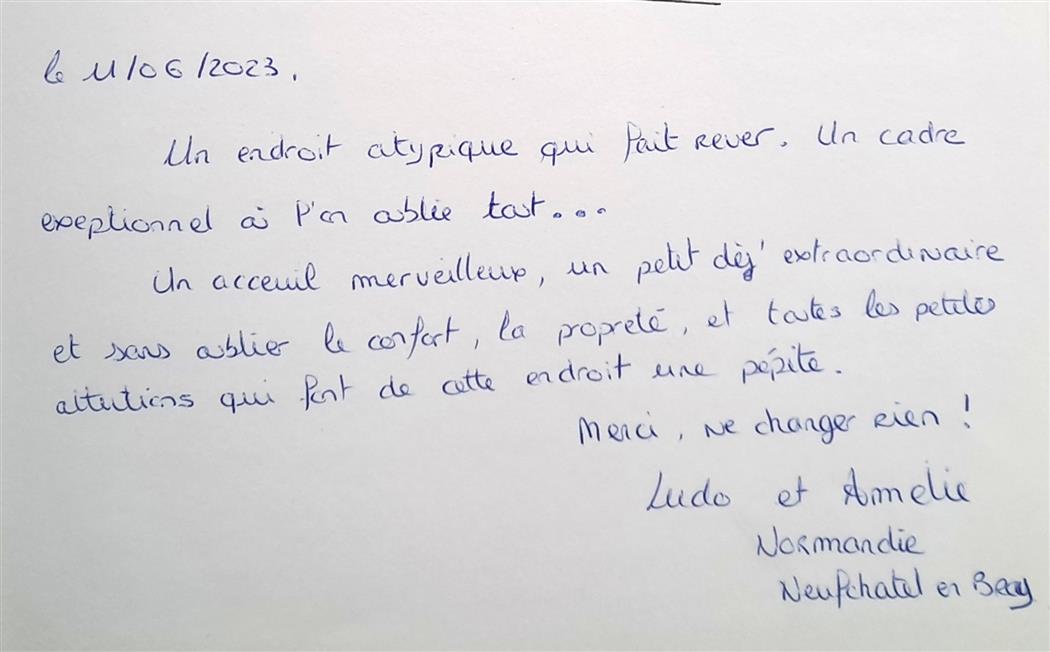 le 11/06/2023.
Un endroit atypique qui fait rever. Un cadre
exeptionnel où l'on oublie tout...
Un acceuil merveilleux, un petit dèj' extraordinaire
et sans oublier le confort, la propreté, et toutes les petites
attutions qui font de cette endroit une pépite.
Merci, ne changer rien !
Ludo et Amelie
Normandie
Neufchatel en Bray